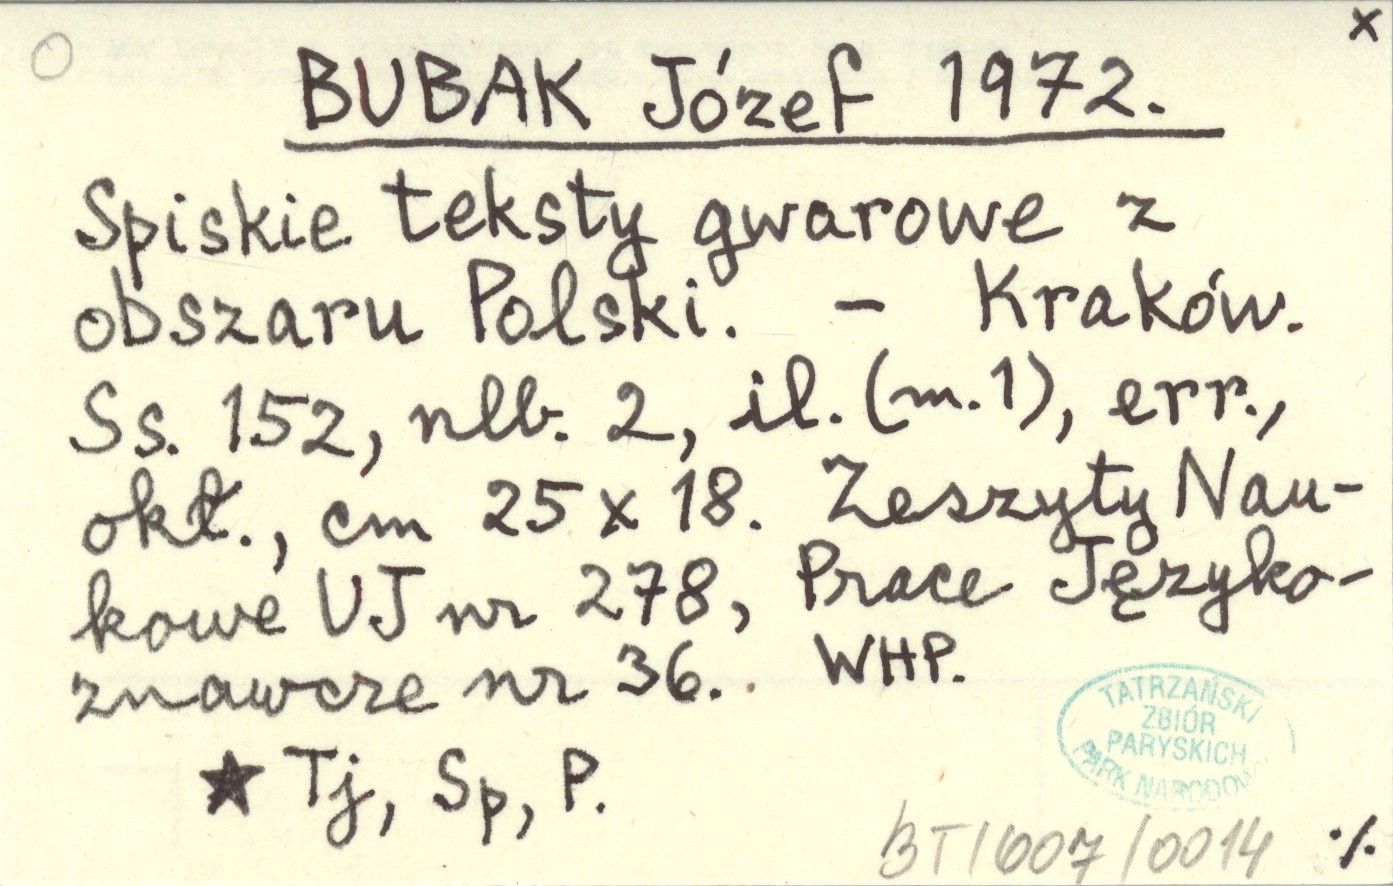 x
BUBAK Józef 1972.
Spiskie teksty gwarowe z
obszaru Polski. - Kraków.
Ss. 152, nlb. 2, il. (m. 1), err.,
okł., cm 25 x 18. Zeszyty Nau-
kowe UJ nr 278, Prace Języko-
znawcze nr 36. WHP.
★ Tj, Sp, P.
TATRZAŃSKI
ZBIÓR
PARYSKICH
PARK NARODOW
BT/007/0014 ./.